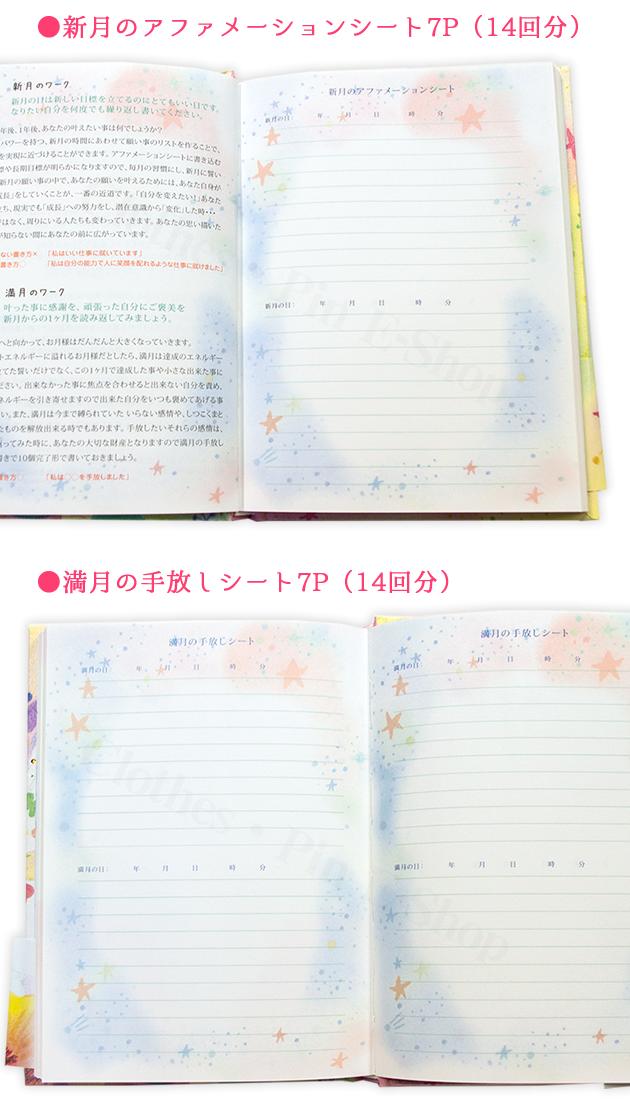 ●新月のアファメーションシート7P（14回分）
新月のワーク
新月の日は新しい目標を立てるのにとてもいい日です。
なりたい自分を何度でも繰り返し書いてください。
年後、1年後、あなたの叶えたい事は何でしょうか？
パワーを持つ、新月の時間にあわせて願い事のリストを作ることで、
を実現に近づけることができます。アファメーションシートに書き込む
標や長期目標が明らかになりますので、毎月の習慣にし、新月に誓い
新月の願い事の中で、あなたの願いを叶えるためには、あなた自身が
成長」をしていくことが、一番の近道です。「自分を変えたい！」あなた
立ち、現実でも「成長」への努力をし、潜在意識から「変化」した時・・
ではなく、周りにいる人たちも変わっていきます。あなたの思い描いた
が知らない間にあなたの前に広がっています。
ない書き方× 「私はいい仕事に就いています」
書き方○ 「私は自分の能力で人に笑顔を配れるような仕事に就けました」
満月のワーク
叶った事に感謝を、頑張った自分にご褒美を
新月からの1ヶ月を読み返してみましょう。
へと向かって、お月様はだんだんと大きくなっていきます。
トエネルギーに溢れるお月様だとしたら、満月は達成のエネルギー
立てた誓いだけでなく、この1ヶ月で達成した事や小さな出来た事に
ださい。出来なかった事に焦点を合わせると出来ない自分を責め、
ネルギーを引き寄せますので出来た自分をいつも褒めてあげる事
い。また、満月は今まで縛られていた いらない感情や、しつこくまと
たものを解放出来る時でもあります。手放したいそれらの感情は、
返ってみた時に、あなたの大切な財産となりますので満月の手放し
書きで10個完了形で書いておきましょう。
書き方○ 「私は○○を手放しました」
新月のアファメーションシート
新月の日: 年 月 日 時 分
新月の日: 年 月 日 時 分
Pin E-Shop
●満月の手放しシート7P（14回分）
満月の手放しシート
満月の日: 年 月 日 時 分
満月の日: 年 月 日 時 分
満月の手放しシート
満月の日: 年 月 日 時 分
満月の日: 年 月 日 時 分
Clothes・Pin E-Shop